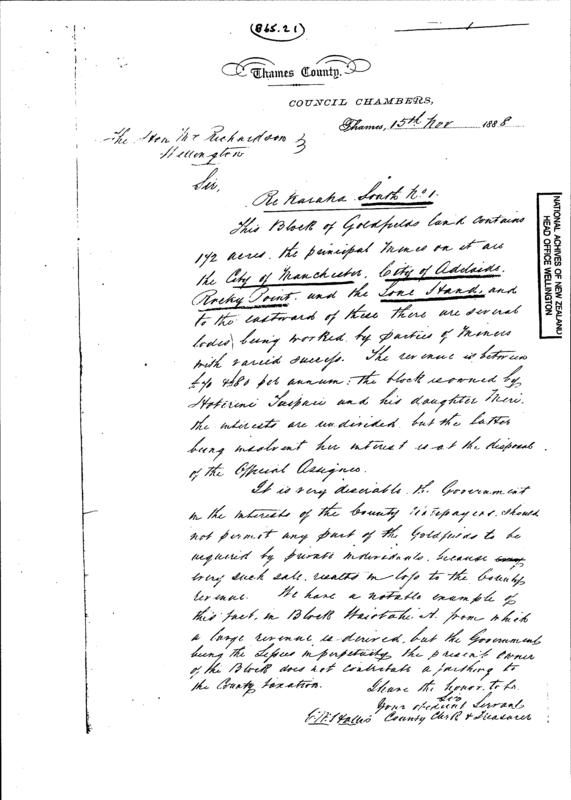 (865.21)
1
Thames County.
COUNCIL CHAMBERS,
Thames, 15th Nov 1888
The Hon Mr Richardson
Wellington
Sir,
Re Karaka South No 1.
This Block of Goldfields land contains
172 acres. the principal Mines on it are
the City of Manchester, City of Adelaide,
Rocky Point, and the Lone Hand, and
to the eastward of these there are several
lodes being worked by parties of Miners
with varied success. The revenue is between
£70 & £80 per annum: the block is owned by
and his daughter Meri.
the interests are undivided but the latter
being insolvent her interest is at the disposal
of the Official Assignee.
It is very desirable the Government
in the interests of the County ratepayers, should
not permit any part of the Goldfields to be
acquired by private individuals, because
every such sale, results in loss to the County
revenue. We have a notable example of
this fact, in Block Waiotahi A. from which
a large revenue is derived, but the Government
being the Lessees in perpetuity the present owner
of the Block does not contribute a farthing to
the County taxation.
I have the honor to be
Sir
Your obedient Servant
County Clerk & Treasurer
NATIONAL ACHIVES OF NEW ZEALAND
HEAD OFFICE WELLINGTON